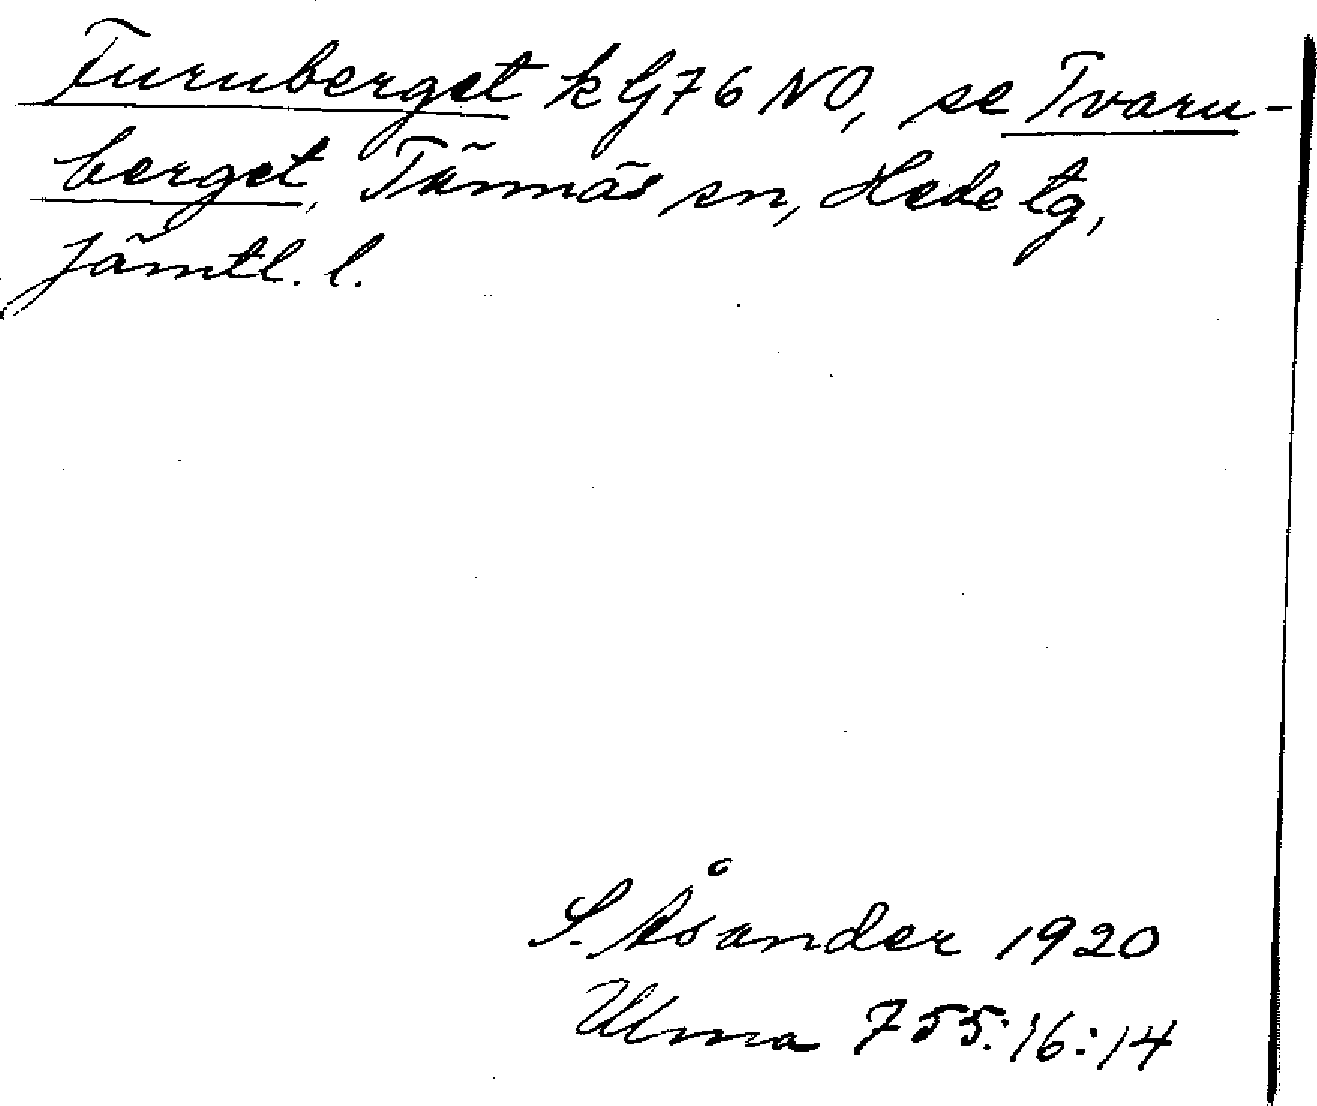 Turuberget k G76 NO, se Tvaru-
berget, Tännäs sn, Hede tg,
Jämtl. l.
S. Åsander 1920
Ulma 755:16:14